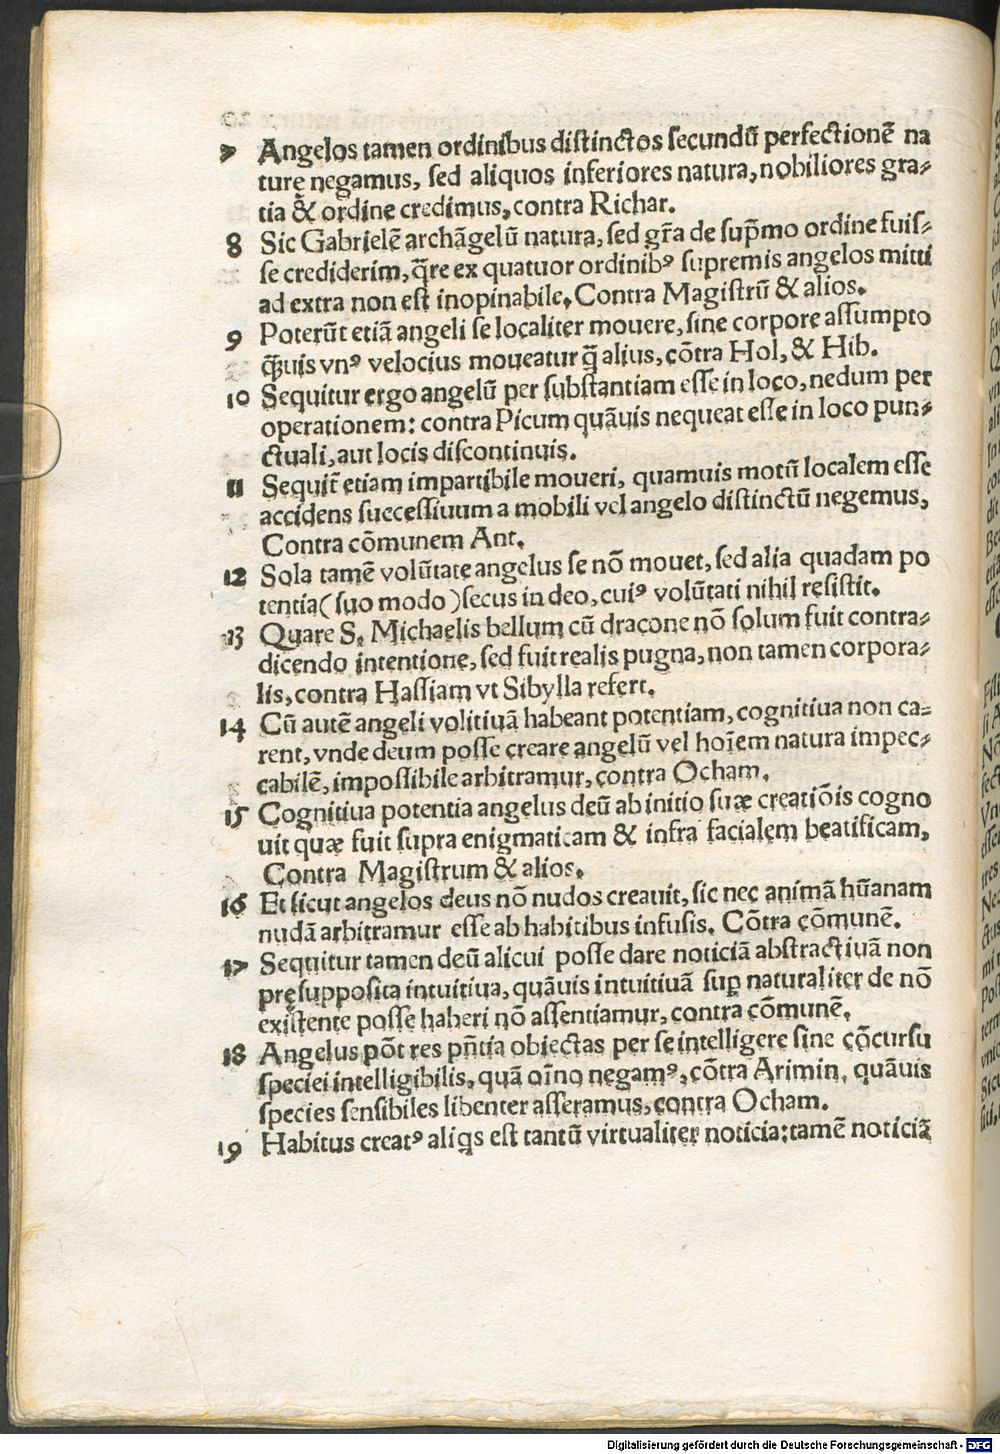 7 Angelos tamen ordinibus distinctos secundū perfectionē na
turę negamus, sed aliquos inferiores natura, nobiliores gra-
tia & ordine credimus, contra Richar.
8 Sic Gabrielē archāgelū natura, sed gr̄a de sup̄mo ordine fuis-
se crediderim, q̄re ex quatuor ordinibꝰ supremis angelos mitti
ad extra non est inopinabile. Contra Magistrū & alios.
9 Poterūt etiā angeli se localiter mouere, sine corpore assumpto
q̄uis vnꝰ velocius moueatur q̄ alius, cōtra Hol, & Hib.
10 Sequitur ergo angelū per substantiam esse in loco, nedum per
operationem: contra Picum quāuis nequeat esse in loco pun-
ctuali, aut locis discontinuis.
11 Sequit̄ etiam impartibile moueri, quamuis motū localem esse
accidens successiuum a mobili vel angelo distinctū negemus,
Contra cōmunem Ant.
12 Sola tamē volūtate angelus se nō mouet, sed alia quadam po
tentia (suo modo) secus in deo, cuiꝰ volūtati nihil resistit.
13 Quare S. Michaelis bellum cū dracone nō solum fuit contra-
dicendo intentione, sed fuit realis pugna, non tamen corpora-
lis, contra Hassiam vt Sibylla refert.
14 Cū autē angeli volitiuā habeant potentiam, cognitiua non ca-
rent, vnde deum posse creare angelū vel hoīem natura impec-
cabilē, impossibile arbitramur, contra Ocham.
15 Cognitiua potentia angelus deū ab initio suæ creatiōis cogno
uit quæ fuit supra enigmaticam & infra facialem beatificam,
Contra Magistrum & alios.
16 Et sicut angelos deus nō nudos creauit, sic nec animā hūanam
nudā arbitramur esse ab habitibus infusis. Cōtra cōmunē.
17 Sequitur tamen deū alicui posse dare noticiā abstractiuā non
pręsupposita intuitiua, quāuis intuitiuā suꝑ naturaliter de nō
existente posse haberi nō assentiamur, contra cōmunē.
18 Angelus pōt res pn̄tia obiectas per se intelligere sine cōcursu
speciei intelligibilis, quā oīno negamꝰ, cōtra Arimin, quāuis
species sensibiles libenter asseramus, contra Ocham.
19 Habitus creatꝰ aliqs est tantū virtualiter noticia: tamē noticiā
Digitalisierung gefördert durch die Deutsche Forschungsgemeinschaft - DFG